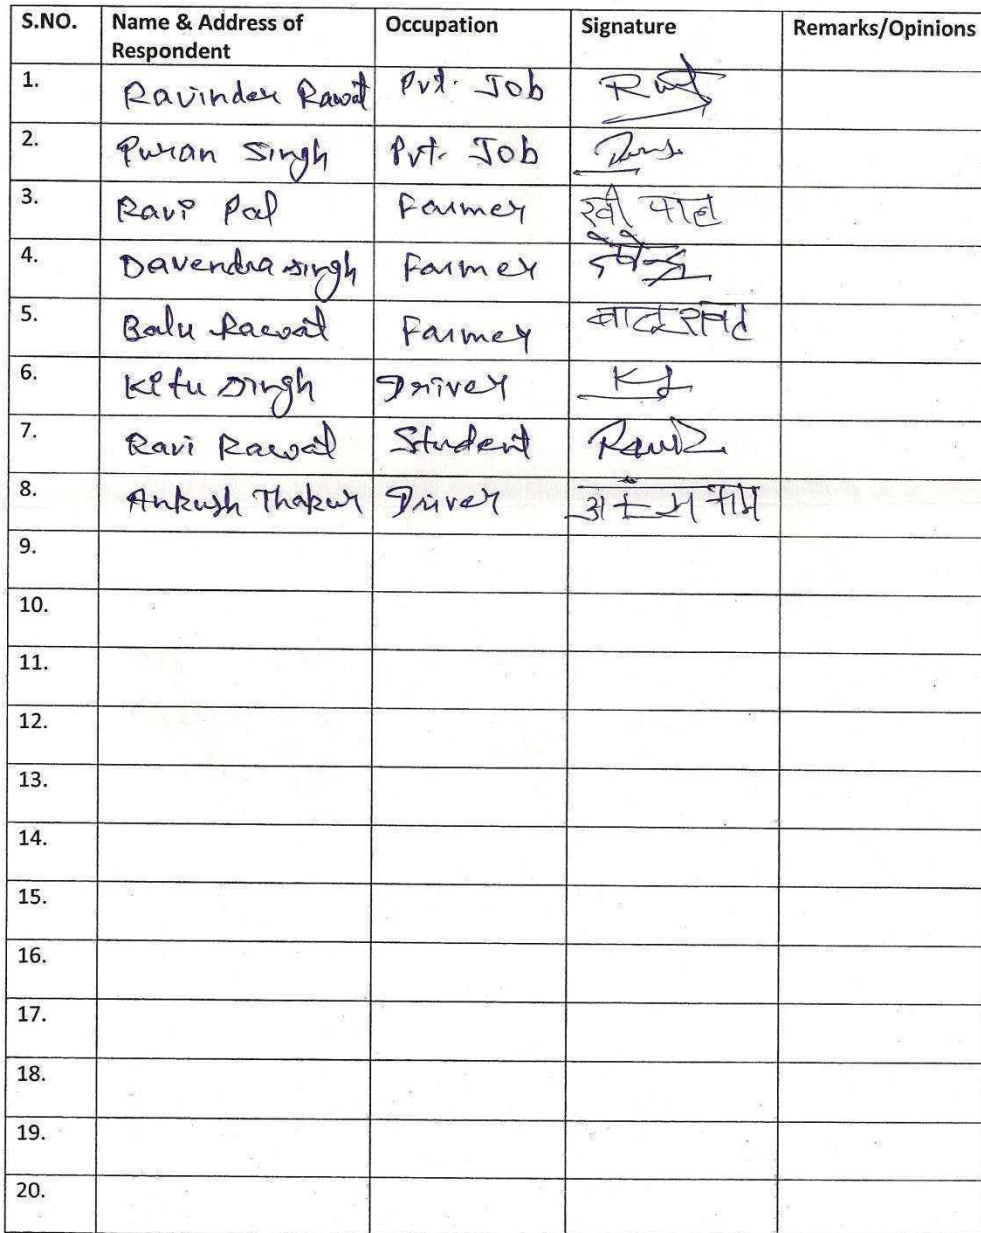 S.NO. Name & Address of Respondent Occupation Signature Remarks/Opinions
1. Ravinder Rawat Pvt. Job
2. Puran Singh Pvt. Job
3. Ravi Pal Farmer रवी पाल
4. Davendra Singh Farmer
5. Balu Rawat Farmer
6. Kitu Singh Driver KS
7. Ravi Rawat Student
8. Ankush Thakur Driver
9.
10.
11.
12.
13.
14.
15.
16.
17.
18.
19.
20.